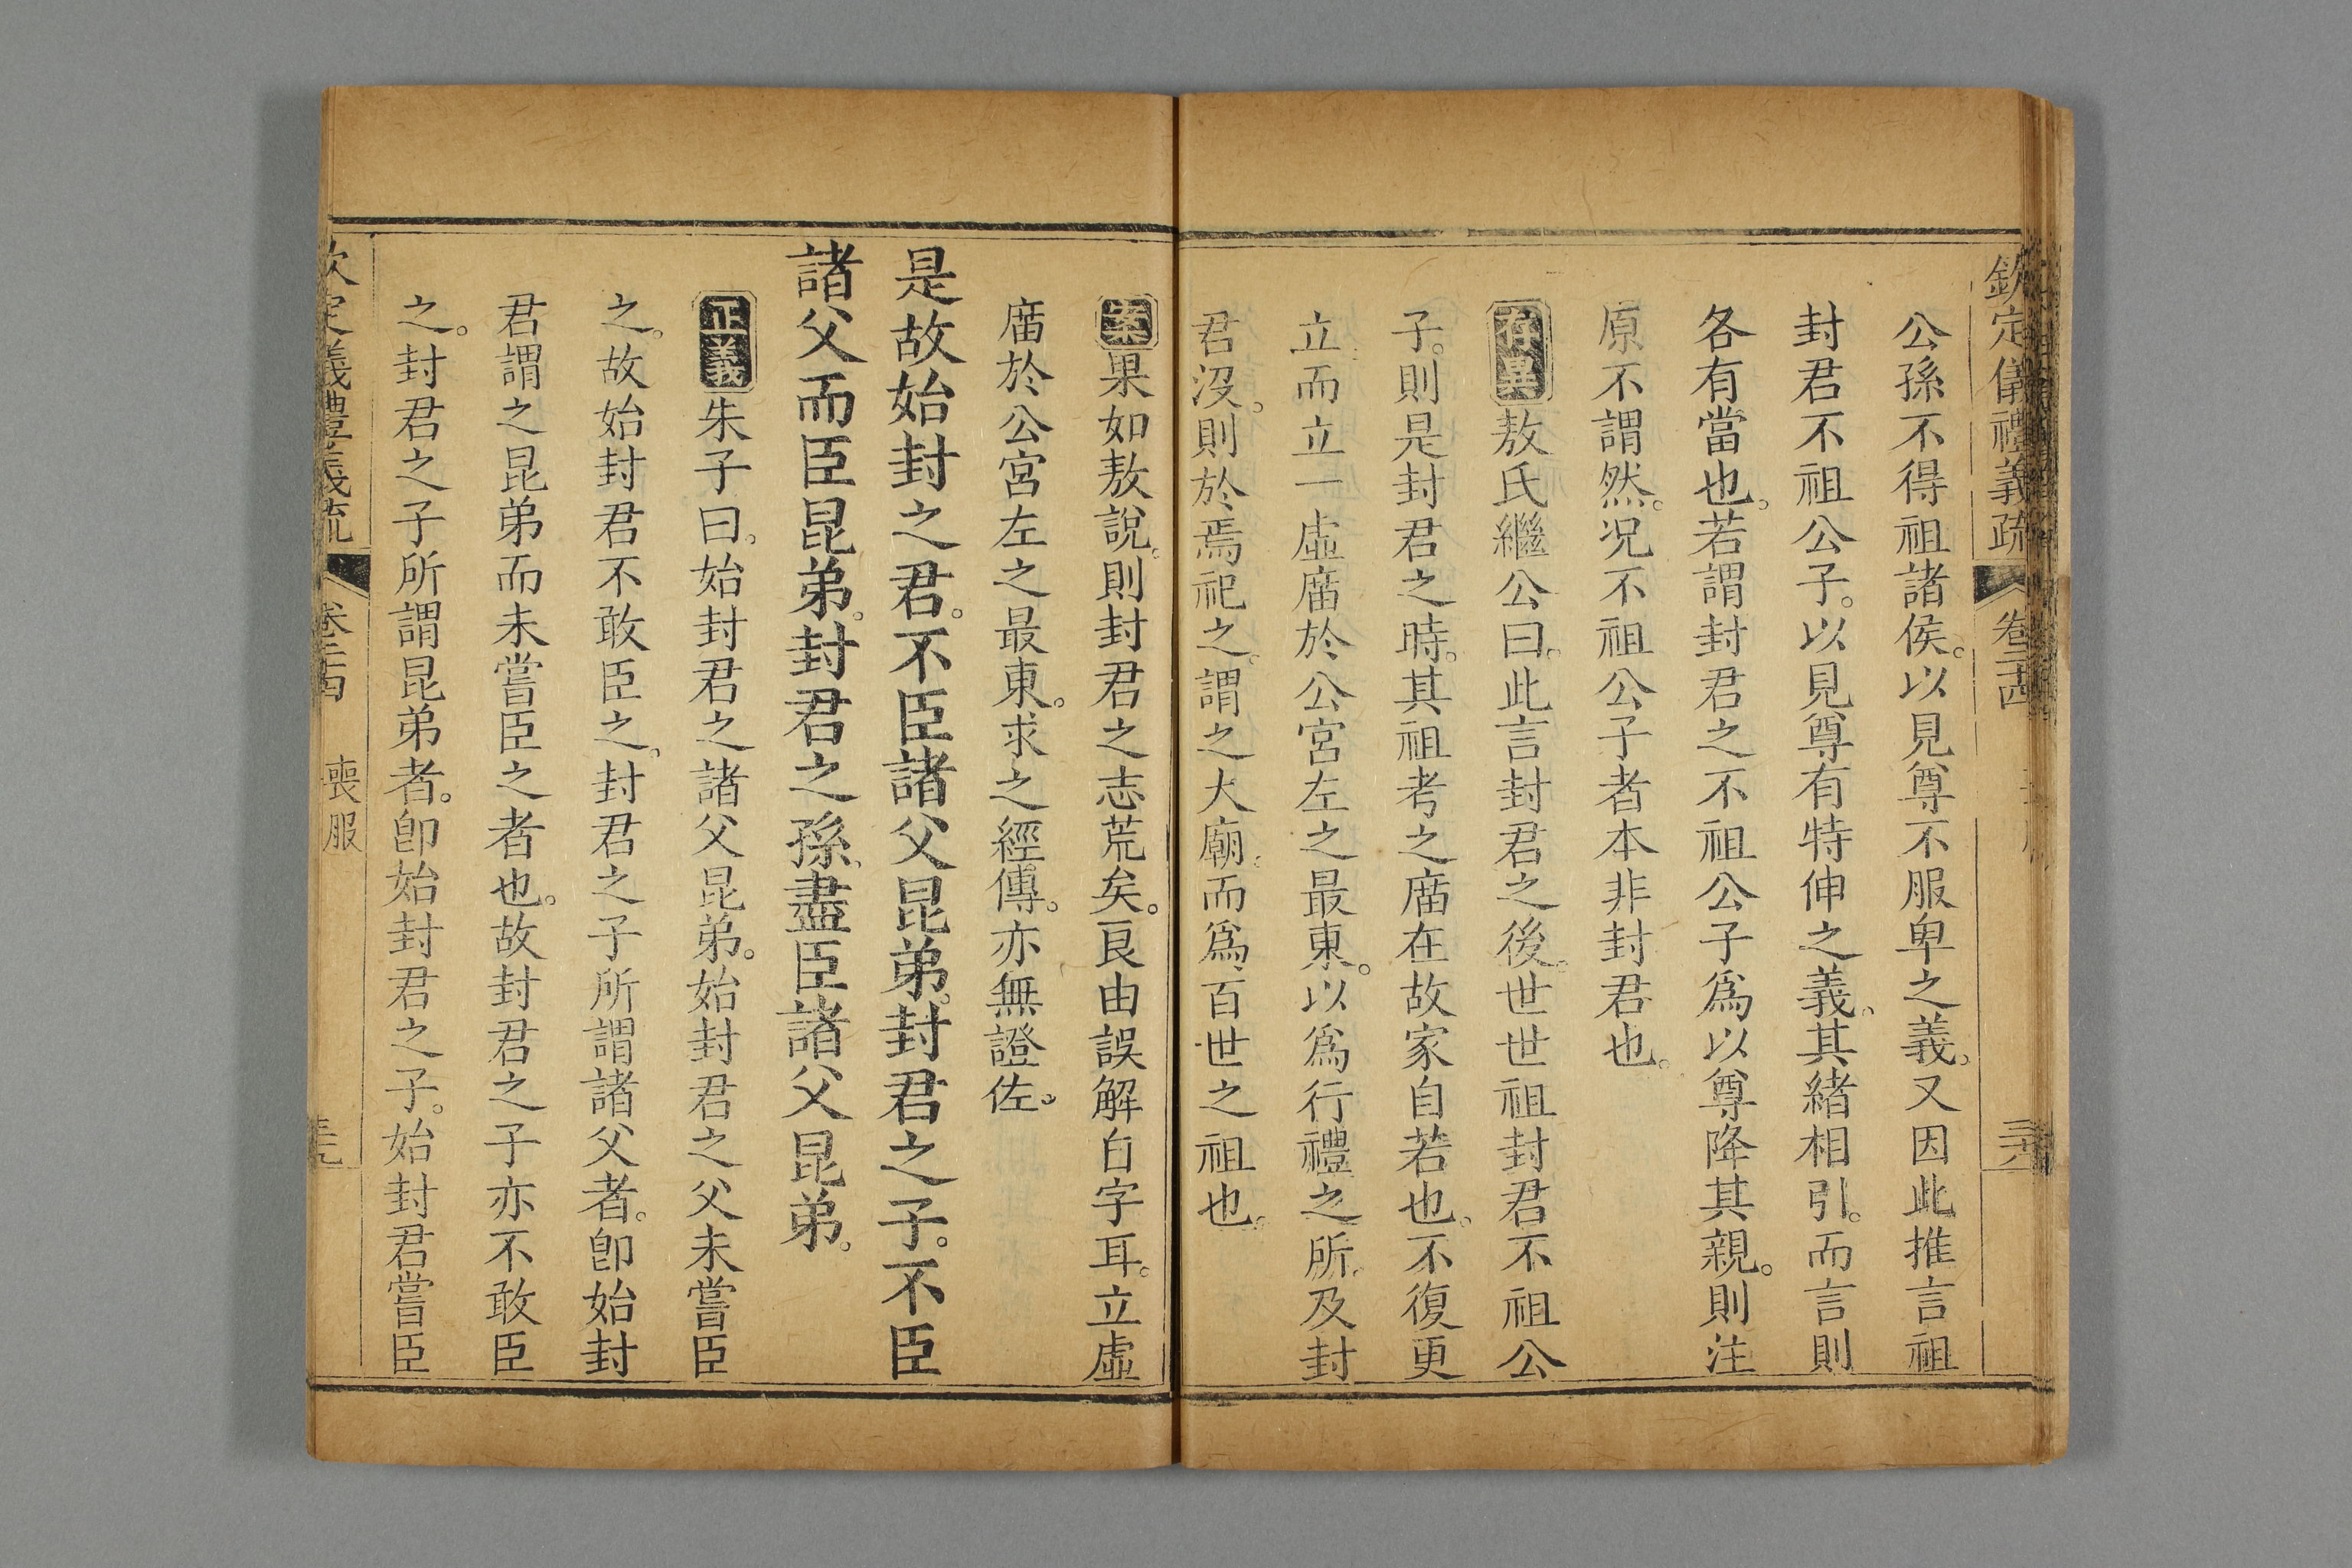 欽定儀禮義疏 卷二十四 三十八
公孫不得祖諸侯。以見尊不服卑之義。又因此推言祖
封君不祖公子。以見尊有特伸之義。其緒相引。而言則
各有當也。若謂封君之不祖公子爲以尊降其親。則注
原不謂然。况不祖公子者本非封君也。
存異敖氏繼公曰。此言封君之後。世世祖封君不祖公
子。則是封君之時。其祖考之庿在故家自若也。不復更
立而立一虛庿於公宮左之最東。以爲行禮之所。及封
君沒。則於焉祀之。謂之大廟。而爲百世之祖也。
案果如敖說。則封君之志荒矣。良由誤解自字耳。立虛
庿於公宮左之最東。求之經傳。亦無證佐。
是故始封之君。不臣諸父昆弟。封君之子。不臣
諸父而臣昆弟。封君之孫。盡臣諸父昆弟。
正義朱子曰。始封君之諸父昆弟。始封君之父未嘗臣
之。故始封君不敢臣之。封君之子所謂諸父者。卽始封
君謂之昆弟而未嘗臣之者也。故封君之子亦不敢臣
之。封君之子所謂昆弟者。卽始封君之子。始封君嘗臣
欽定義禮義疏 卷二十四 喪服 三十九